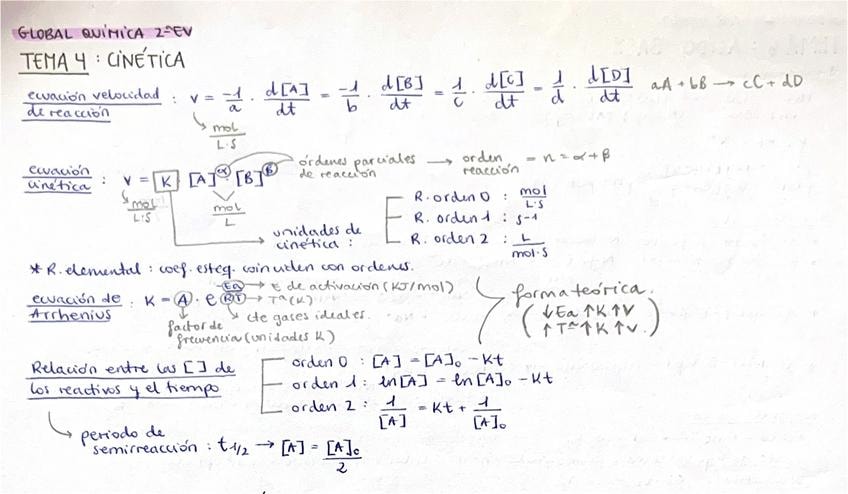 GLOBAL QUÍMICA 2ªEV
TEMA 4 : CINÉTICA
ecuación velocidad de reacción : v = -1/a · d[A]/dt = -1/b · d[B]/dt = 1/c · d[C]/dt = 1/d · d[D]/dt aA + bB → cC + dD
mol/L·S
ecuación cinética : v = K [A]^α · [B]^β órdenes parciales de reacción → orden reacción = n = α + β
mol/L·S mol/L
unidades de cinética :
R. orden 0 : mol/L·S
R. orden 1 : s-1
R. orden 2 : L/mol·S
* R. elemental : coef. esteq. coinciden con ordenes.
ecuación de Arrhenius : K = A · e^-Ea/RT → E de activación (KJ/mol)
→ Tª (K)
cte gases ideales.
factor de frecuencia (unidades K)
forma teórica.
(↓Ea ↑K ↑V
↑Tª ↑K ↑v.)
Relación entre las [ ] de los reactivos y el tiempo
orden 0 : [A] = [A]₀ - Kt
orden 1 : ln[A] = ln[A]₀ - Kt
orden 2 : 1/[A] = Kt + 1/[A]₀
periodo de semirreacción : t1/2 → [A] = [A]₀/2